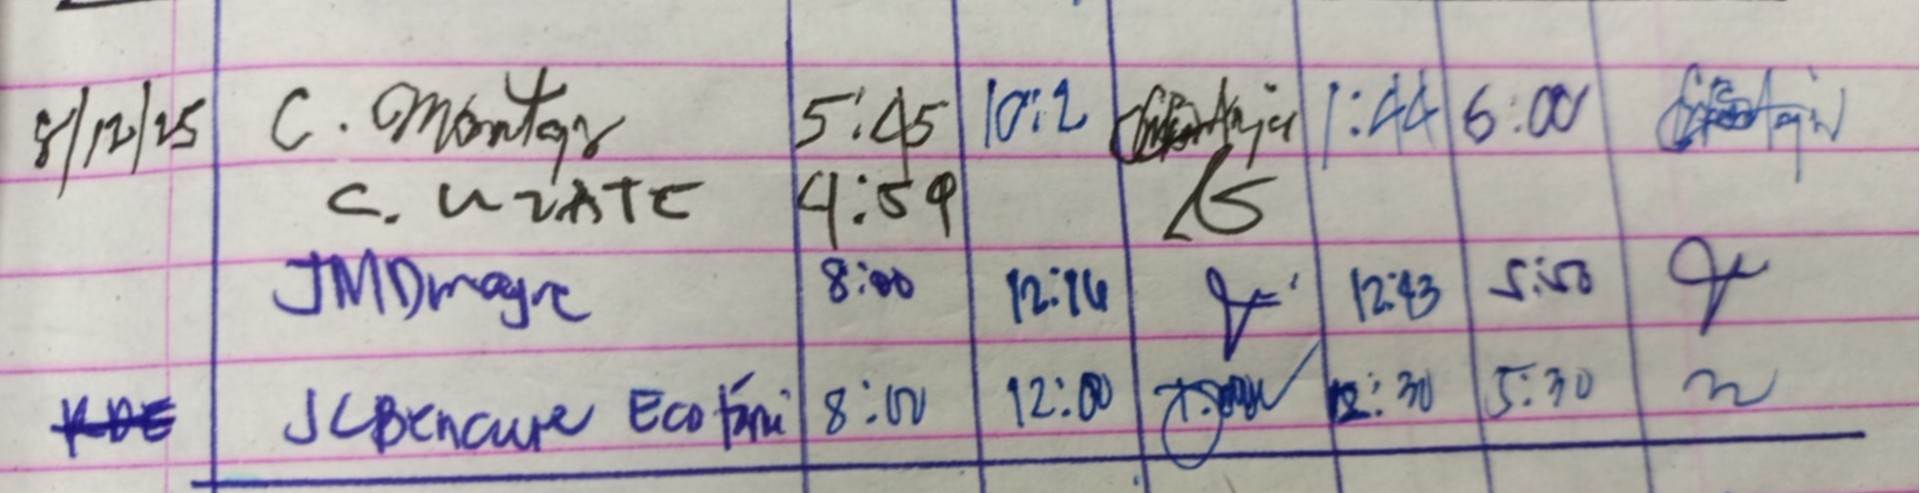 8/12/25 C. Montgr 5:45 10:2 1:44 6:00
C. UZATE 4:59
JMDmagre 8:00 12:16 12:43 5:50
KDE JCBencure 8:00 12:00 12:30 5:30